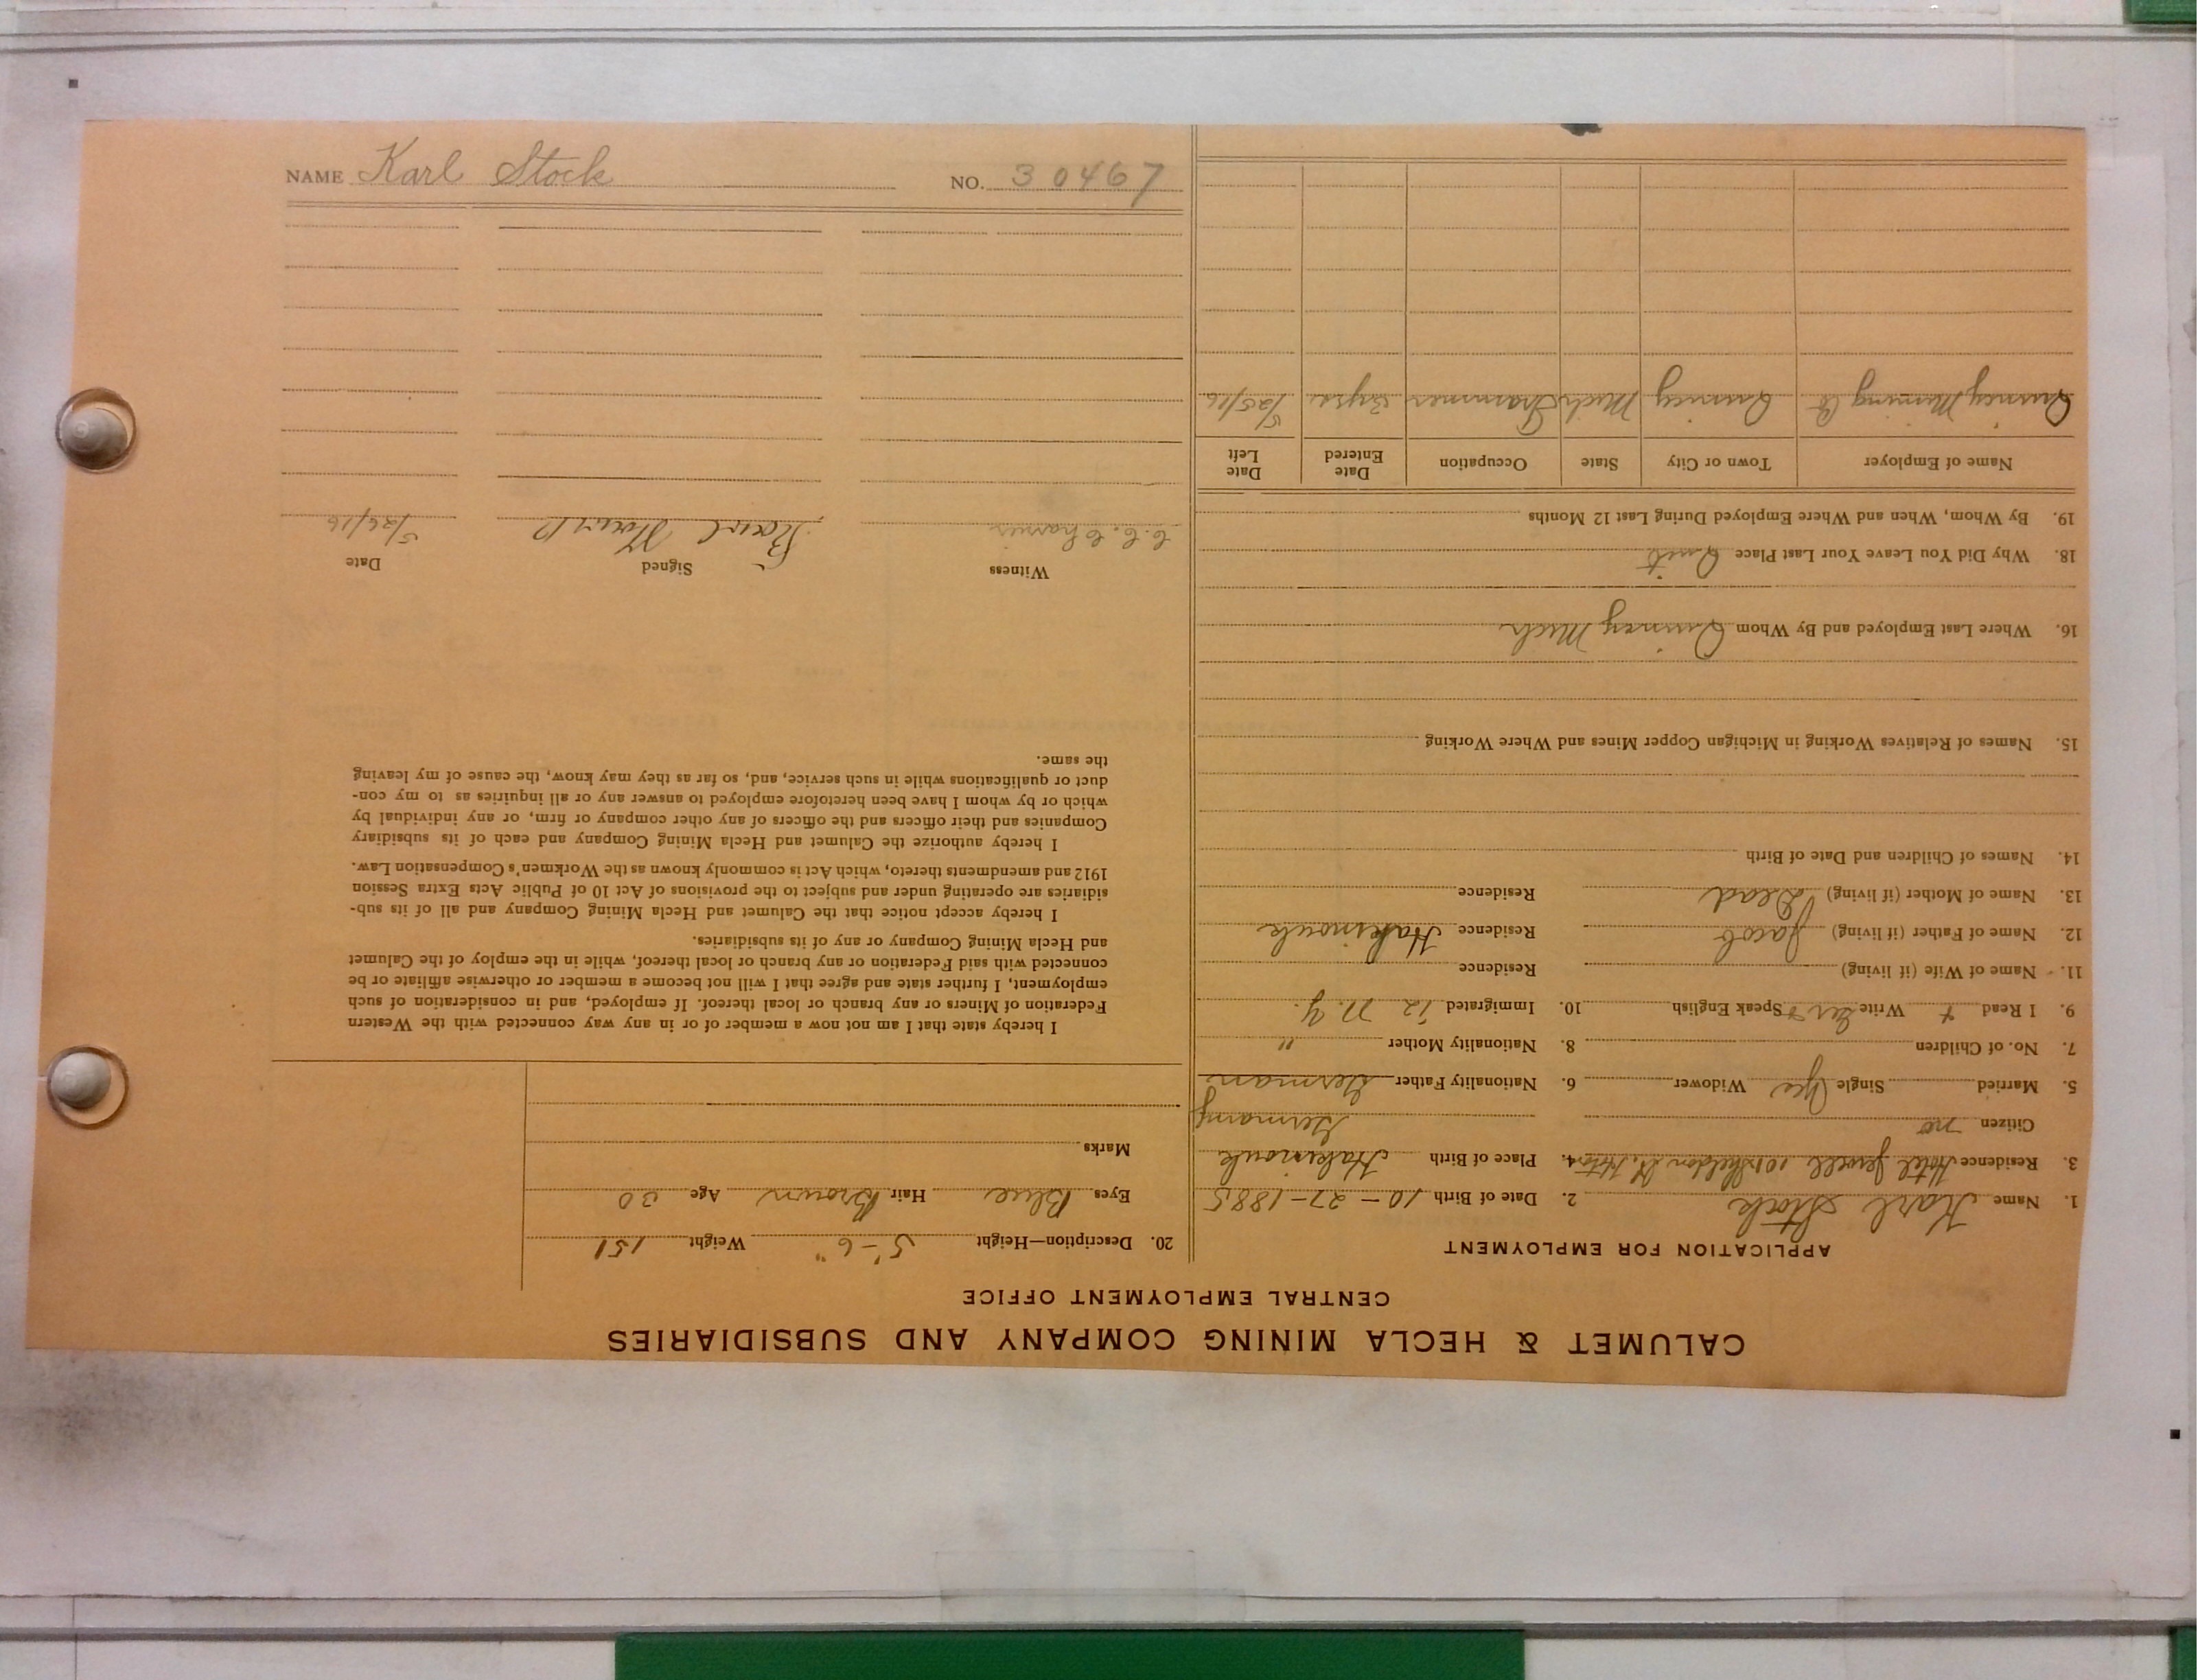 CALUMET & HECLA MINING COMPANY AND SUBSIDIARIES
CENTRAL EMPLOYMENT OFFICE
APPLICATION FOR EMPLOYMENT
1. Name Karl Stock 2. Date of Birth 10-27-1885
3. Residence Hotel Jewell 101 Sheldon St. Hoton 4. Place of Birth
Citizen no Germany
5. Married Single Yes Widower 6. Nationality Father German
7. No. of Children 8. Nationality Mother "
9. I Read + Write Ger + Speak English 10. Immigrated 12 N.Y.
11. Name of Wife (if living) Residence
12. Name of Father (if living) Jacob Residence
13. Name of Mother (if living) Dead Residence
14. Names of Children and Date of Birth
15. Names of Relatives Working in Michigan Copper Mines and Where Working
16. Where Last Employed and By Whom Quincy Mich
18. Why Did You Leave Your Last Place Quit
19. By Whom, When and Where Employed During Last 12 Months
Name of Employer Town or City State Occupation Date Entered Date Left
Quincy Mining Co Quincy Mich Trammer 3yrs. 5/25/16
20. Description—Height 5'-6" Weight 151
Eyes Blue Hair Brown Age 30
Marks
I hereby state that I am not now a member of or in any way connected with the Western
Federation of Miners or any branch or local thereof. If employed, and in consideration of such
employment, I further state and agree that I will not become a member or otherwise affiliate or be
connected with said Federation or any branch or local thereof, while in the employ of the Calumet
and Hecla Mining Company or any of its subsidiaries.
I hereby accept notice that the Calumet and Hecla Mining Company and all of its sub-
sidiaries are operating under and subject to the provisions of Act 10 of Public Acts Extra Session
1912 and amendments thereto, which Act is commonly known as the Workmen's Compensation Law.
I hereby authorize the Calumet and Hecla Mining Company and each of its subsidiary
Companies and their officers and the officers of any other company or firm, or any individual by
which or by whom I have been heretofore employed to answer any or all inquiries as to my con-
duct or qualifications while in such service, and, so far as they may know, the cause of my leaving
the same.
Witness Signed Date
C. C. Karl 5/26/16
NAME Karl Stock NO. 30467